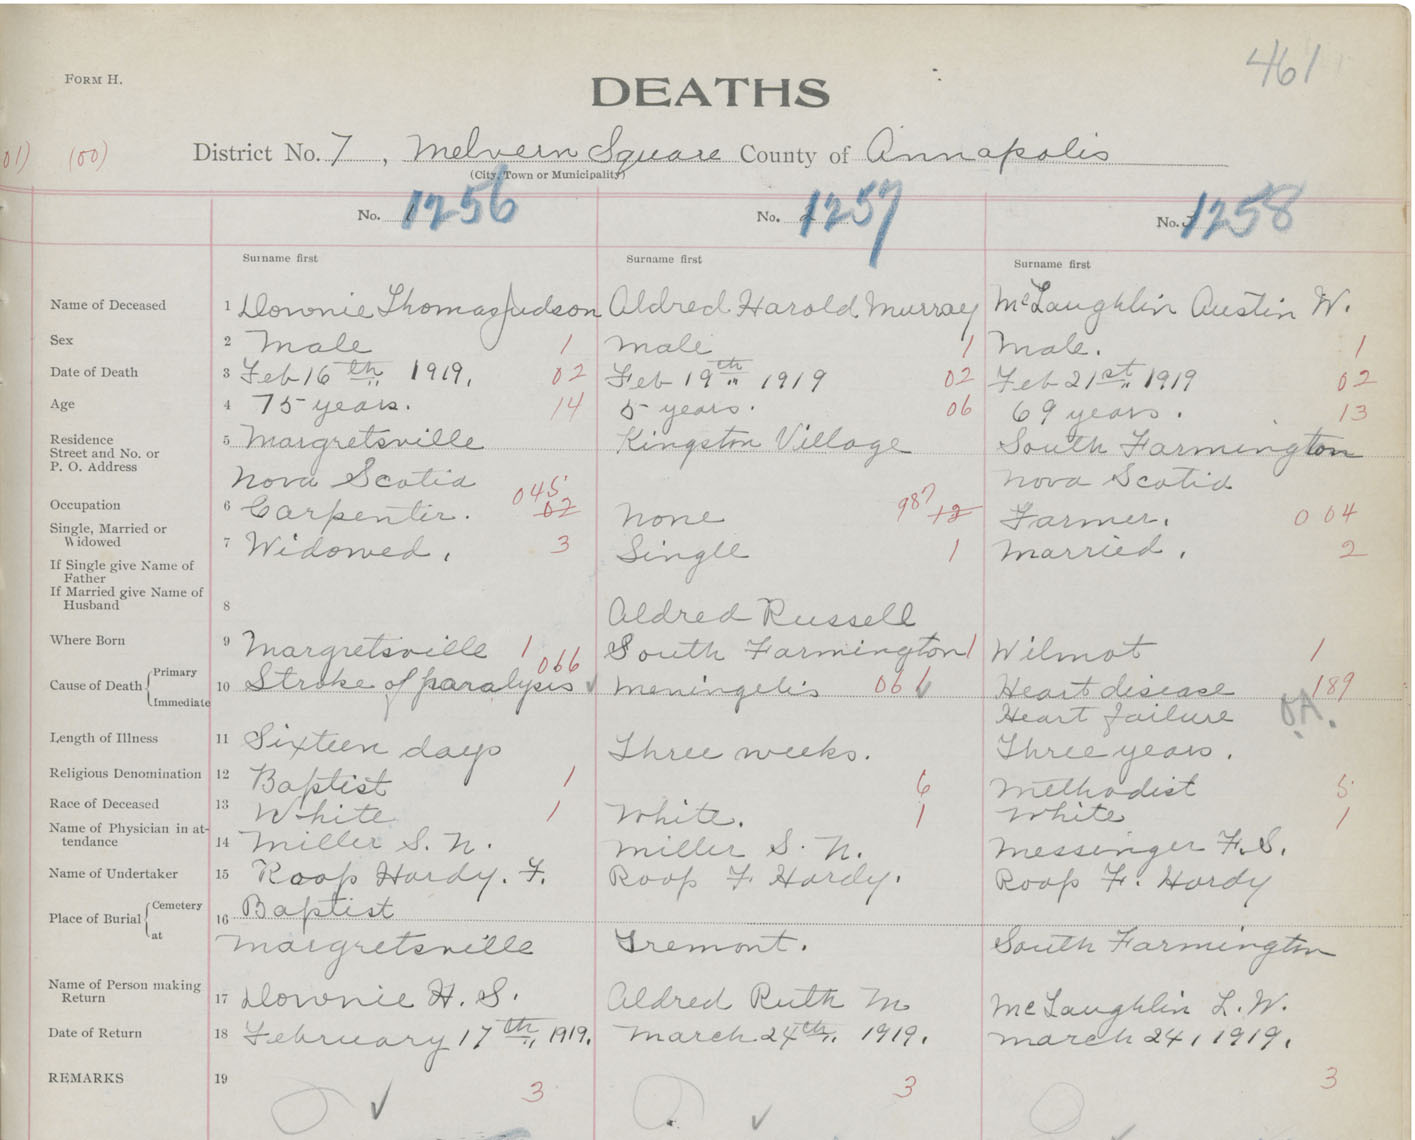 461
FORM H.
DEATHS
01) (00) District No. 7, Melvern Square County of Annapolis
(City, Town or Municipality)
No. 1256 No. 1257 No. 1258
Surname first Surname first Surname first
Name of Deceased 1 Downie Thomas Judson Aldred Harold Murray McLaughlin Austin W.
Sex 2 Male 1 Male 1 Male. 1
Date of Death 3 Feb 16th 1919. 02 Feb 19th 1919 02 Feb 21st 1919 02
Age 4 75 years. 14 5 years. 06 69 years. 13
Residence Street and No. or P. O. Address 5 Margretsville Kingston Village South Farmington
Nova Scotia Nova Scotia
Occupation 6 Carpenter. 045 02 None 987 12 Farmer. 004
Single, Married or Widowed 7 Widowed. 3 Single 1 Married. 2
If Single give Name of Father
If Married give Name of Husband 8 Aldred Russell
Where Born 9 Margretsville 1 South Farmington 1 Wilmot 1
Cause of Death Primary Immediate 10 Stroke of paralysis 066 Meningetis 061 Heart disease 189
Heart failure O.A.
Length of Illness 11 Sixteen days Three weeks. Three years.
Religious Denomination 12 Baptist 1 6 Methodist 5
Race of Deceased 13 White 1 White. 1 White 1
Name of Physician in attendance 14 Miller S. N. Miller S. N. Messenger F. S.
Name of Undertaker 15 Roop Hardy. F. Roop F Hardy. Roop F. Hardy
Place of Burial Cemetery at 16 Baptist
Margretsville Tremont. South Farmington
Name of Person making Return 17 Downie H. S. Aldred Ruth M McLaughlin L. W.
Date of Return 18 February 17th, 1919. March 24th, 1919. March 24, 1919.
REMARKS 19 3 3 3